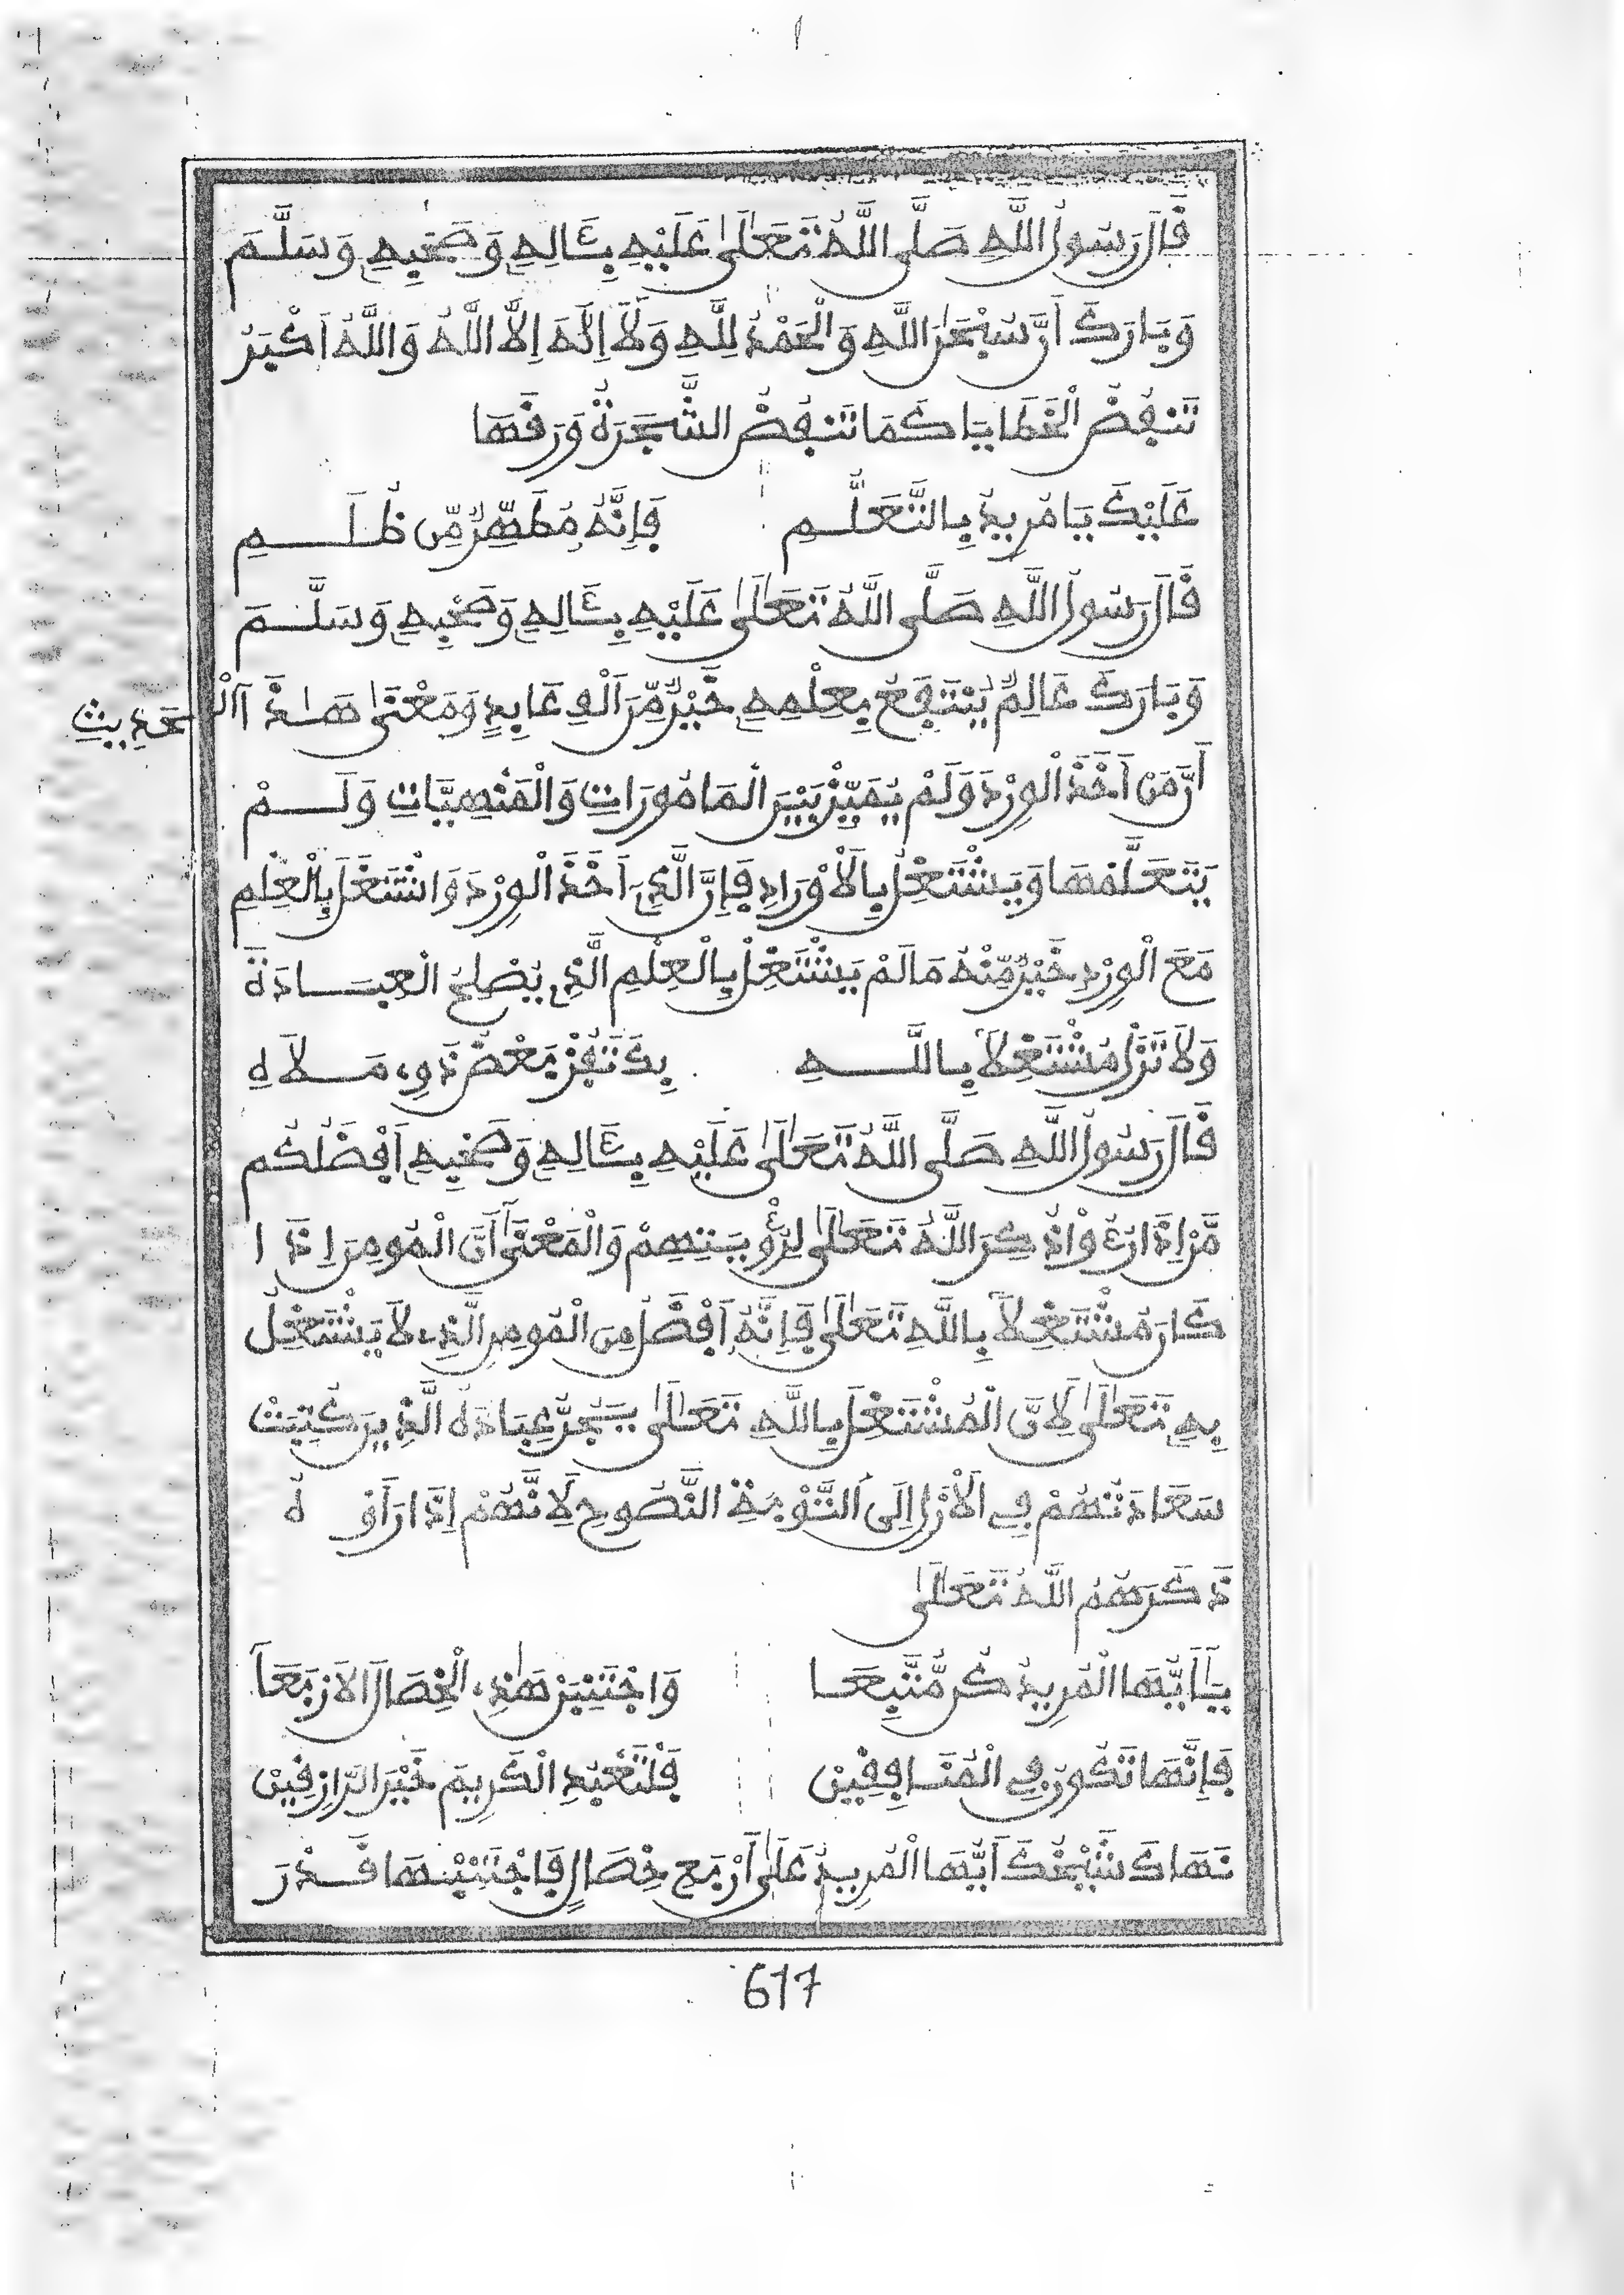 قَالَ رَسُولُ اللَّهِ صَلَّى اللَّهُ تَعَلَىٰ عَلَيْهِ بِـَٔالِهِ وَصَحْبِهِ وَسَلَّمَ
وَبَارَكَ أَنَّ سُبْحَٰنَ اللَّهِ وَالْحَمْدُ لِلَّهِ وَلَآ إِلَٰهَ إِلَّا اللَّهُ وَاللَّهُ أَكْبَرُ
تَنفُضُ الْخَطَايَا كَمَا تَنفُضُ الشَّجَرَةُ وَرَقَهَا
عَلَيْكَ يَا مُرِيدُ بِالتَّعَلُّمِ فَإِنَّهُ مُطَهِّرٌ مِّن ظُلَمِ
قَالَ رَسُولُ اللَّهِ صَلَّى اللَّهُ تَعَلَىٰ عَلَيْهِ بِـَٔالِهِ وَصَحْبِهِ وَسَلَّمَ
وَبَارَكَ عَالِمٌ يُنتَفَعُ بِعِلْمِهِ خَيْرٌ مِّنَ اَلْفِ عَابِدٍ وَمَعْنَىٰ هَٰذَا الْحَدِيثِ
أَنَّ مَنْ أَخَذَ الْوِرْدَ وَلَمْ يُمَيِّزْ بَيْنَ الْمَامُورَاتِ وَالْمَنْهِيَّاتِ وَلَمْ
يَتَعَلَّمْهَا وَيَشْتَغِلُ بِالْأَوْرَادِ فَإِنَّ الَّذِي أَخَذَ الْوِرْدَ وَاشْتَغَلَ بِالْعِلْمِ
مَعَ الْوِرْدِ خَيْرٌ مِّنْهُ مَا لَمْ يَشْتَغِلْ بِالْعِلْمِ الَّذِي يُصْلِحُ الْعِبَادَةَ
وَلَا تَزَلْ مُشْتَغِلًا بِاللَّهِ بِكَ تَفُزْ بَعْضُ ذَوِي مَلَاهِ
قَالَ رَسُولُ اللَّهِ صَلَّى اللَّهُ تَعَلَىٰ عَلَيْهِ بِـَٔالِهِ وَصَحْبِهِ أَفْضَلُكُم
مَّنْ إِذَا رُءُوا ذُكِرَ اللَّهُ تَعَلَىٰ لِرُؤْيَتِهِمْ وَالْمَعْنَىٰ أَنَّ الْمُومِنَ إِذَا
كَانَ مُشْتَغِلًا بِاللَّهِ تَعَلَىٰ فَإِنَّهُ أَفْضَلُ مِنَ الْمُومِنِ الَّذِي لَا يَشْتَغِلُ
بِهِ تَعَلَىٰ لِأَنَّ الْمُشْتَغِلَ بِاللَّهِ تَعَلَىٰ يَجُرُّ عِبَادَهُ الَّذِينَ كُتِبَتْ
سَعَادَتُهُمْ فِي الْأَزَلِ إِلَى التَّوْبَةِ النَّصُوحِ لِأَنَّهُمْ إِذَا رَأَوْهُ
ذَكَرَهُمُ اللَّهُ تَعَلَىٰ
يَآ أَيُّهَا الْمُرِيدُ كُن مُّتَّبِعَا وَاجْتَنِبَنْ هَٰذِي الْخِصَالَ الْأَرْبَعَا
فَإِنَّهَا تَكُونُ فِي الْمُنَافِقِينْ فَلْتَعْبُدِ الْكَرِيمَ خَيْرَ الرَّازِقِينْ
نَهَاكَ شَيْخُكَ أَيُّهَا الْمُرِيدُ عَلَىٰ أَرْبَعِ خِصَالٍ فَاجْتَنِبْهَا قَدْرَ
617